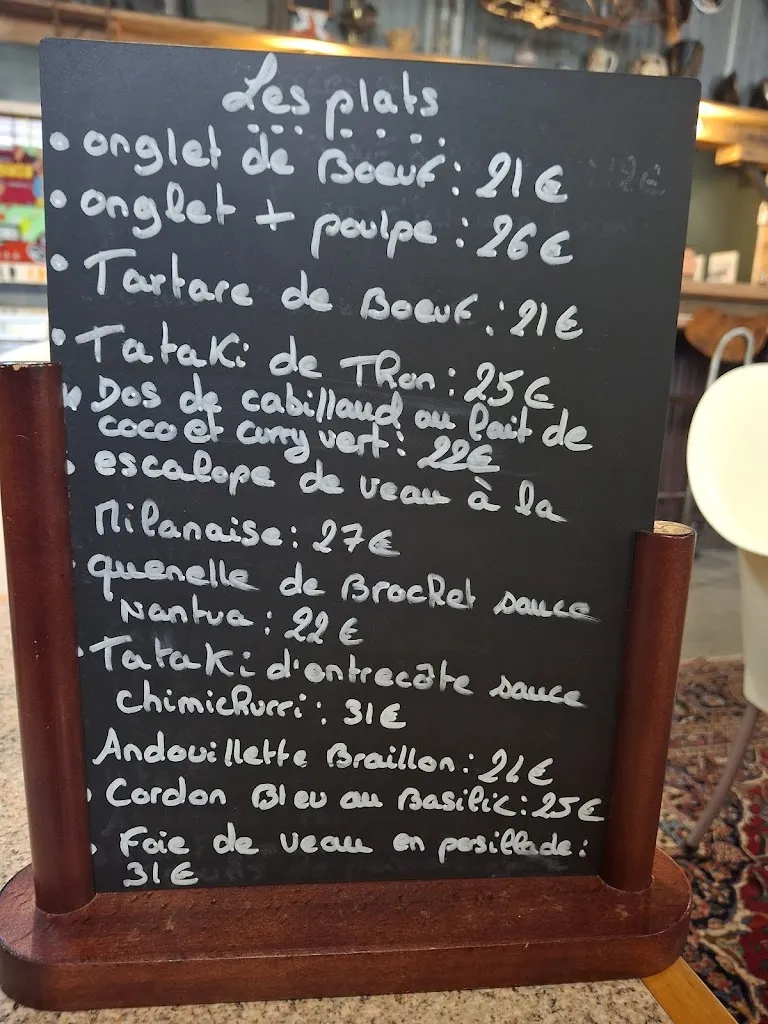 Les plats
• onglet de Boeuf : 21€
• onglet + poulpe : 26€
• Tartare de Boeuf : 21€
• Tataki de Thon : 25€
• Dos de cabillaud au lait de
coco et curry vert : 22€
• escalope de veau à la
Milanaise : 27€
• quenelle de Brochet sauce
Nantua : 22€
• Tataki d'entrecôte sauce
chimichurri : 31€
Andouillette Braillon :
• Cordon Bleu au Basilic : 25€
• Foie de veau en persillade :
31€